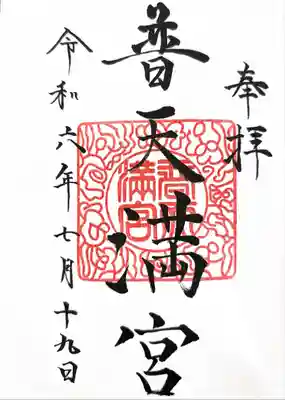 奉拝
普天満宮
普天満宮
令和六年七月十九日